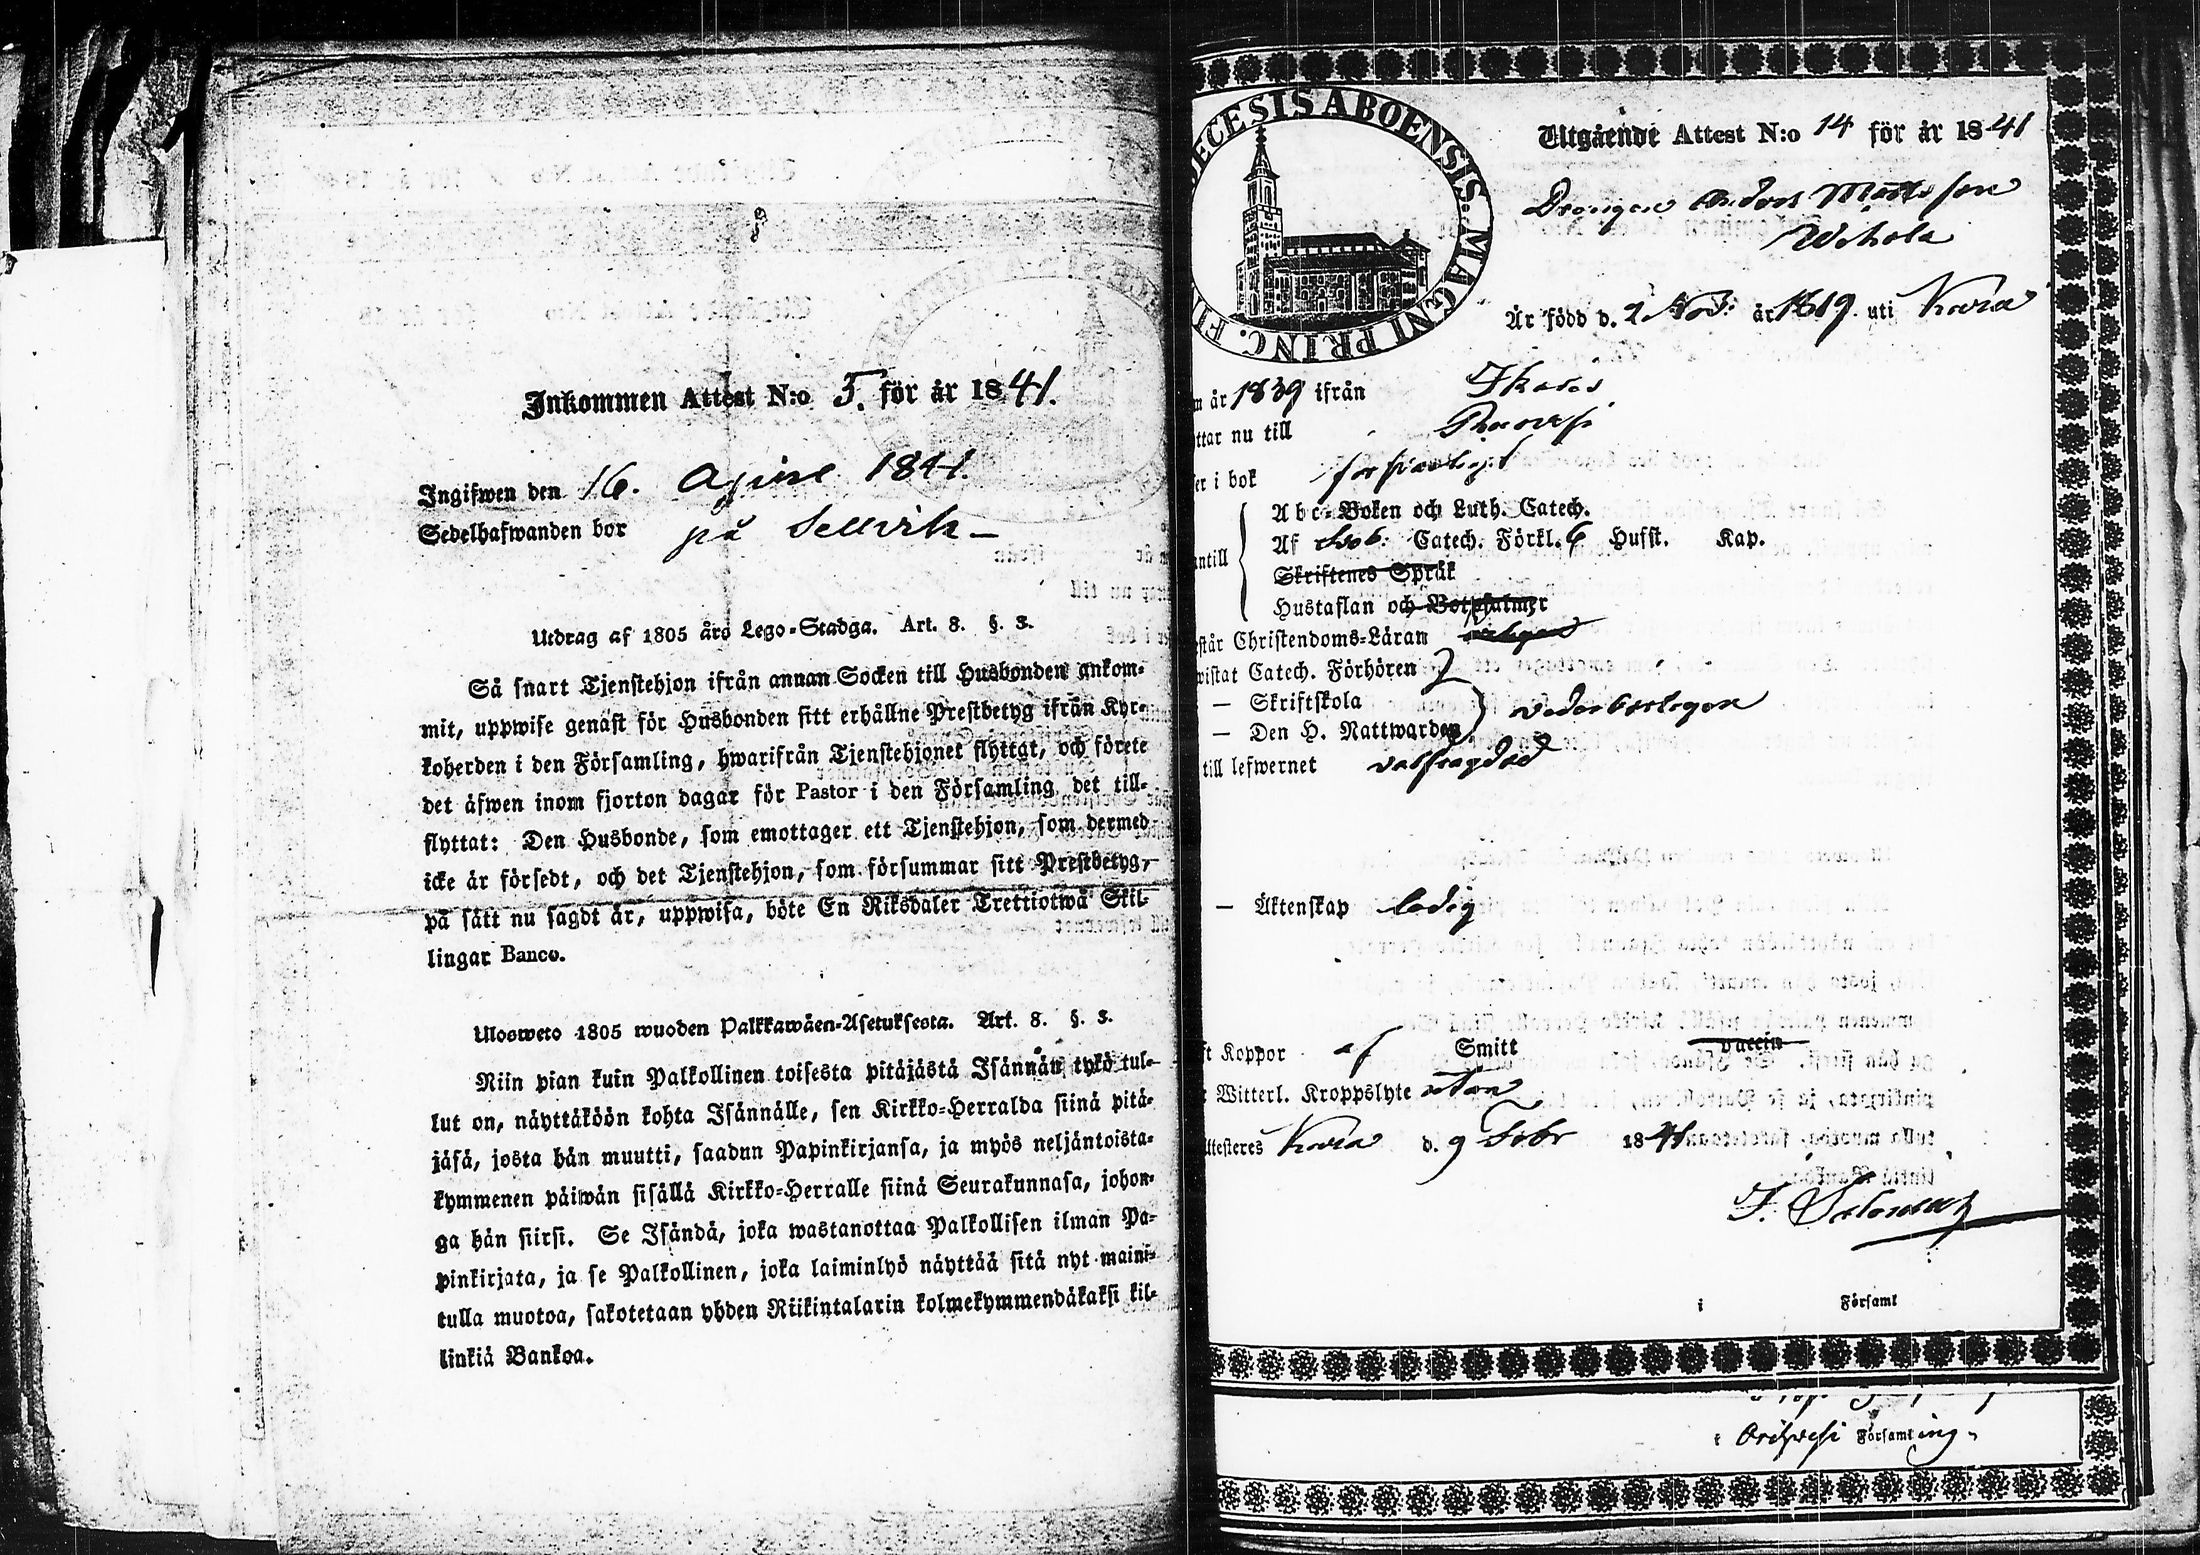 Inkommen Attest N:o 5. för år 1841.
Ingifwen den 16. April 1841.
Sedelhafwanden bor på Sellvik –
Utdrag af 1805 års Lego-Stadga. Art. 8. §. 3.
Så snart Tjenstehjon ifrån annan Socken till Husbonden ankom-
mit, uppwise genast för Husbonden sitt erhållne Prestbetyg ifrån Kyr-
koherden i den Församling, hwarifrån Tjenstehjonet flyttat, och förete
det äfwen inom fjorton dagar för Pastor i den Församling det till-
flyttat: Den Husbonde, som emottager ett Tjenstehjon, som dermed
icke är försedt, och det Tjenstehjon, som försummar sitt Prestbetyg,
på sätt nu sagdt är, uppwisa, böte En Riksdaler Trettiotwå Skil-
lingar Banco.
Ulosweto 1805 wuoden Palkkawäen-Asetuksesta. Art. 8. §. 3.
Niin pian kuin Palkollinen toisesta pitäjästä Isännän tykö tul-
lut on, näyttäköön kohta Isännälle, sen Kirkko-Herralda siinä pitä-
jäsä, josta hän muutti, saadun Papinkirjansa, ja myös neljäntoista-
kymmenen päiwän sisällä Kirkko-Herralle siinä Seurakunnasa, johon-
ga hän siirsi. Se Isändä, joka wastanottaa Palkollisen ilman Pa-
pinkirjata, ja se Palkollinen, joka laiminlyö näyttää sitä nyt maini-
tulla muotoa, sakotetaan yhden Riikintalarin kolmekymmendäkaksi kil-
linkiä Bankoa.
ECESIS ABOENSIS. MAGNI PRINC. FI
Utgående Attest N:o 14 för år 1841
Drängen Anders Mattsson
Wihola
Är född d. 2 Nov: år 1819. uti Kera
år 1839 ifrån Ikalis
ttar nu till Ruovesi
er i bok försvarligt
Abc-Boken och Luth. Catech.
antill Af Sveb. Catech. Förkl. 6 Husst. Kap.
Skriftenes Språk
Hustaflan och Botpsalmer
står Christendoms-Läran
wistat Catech. Förhören
– Skriftskola vederbörligen
– Den H. Nattwarden
till lefwernet välfrägdad
– Äktenskap ledig
ft Koppor af Smitt vaccin
Witterl. Kroppslyte utan
ttesteres Kera d. 9 Febr 1841
J. Salonius
i Församl
i Orihvesi Församling